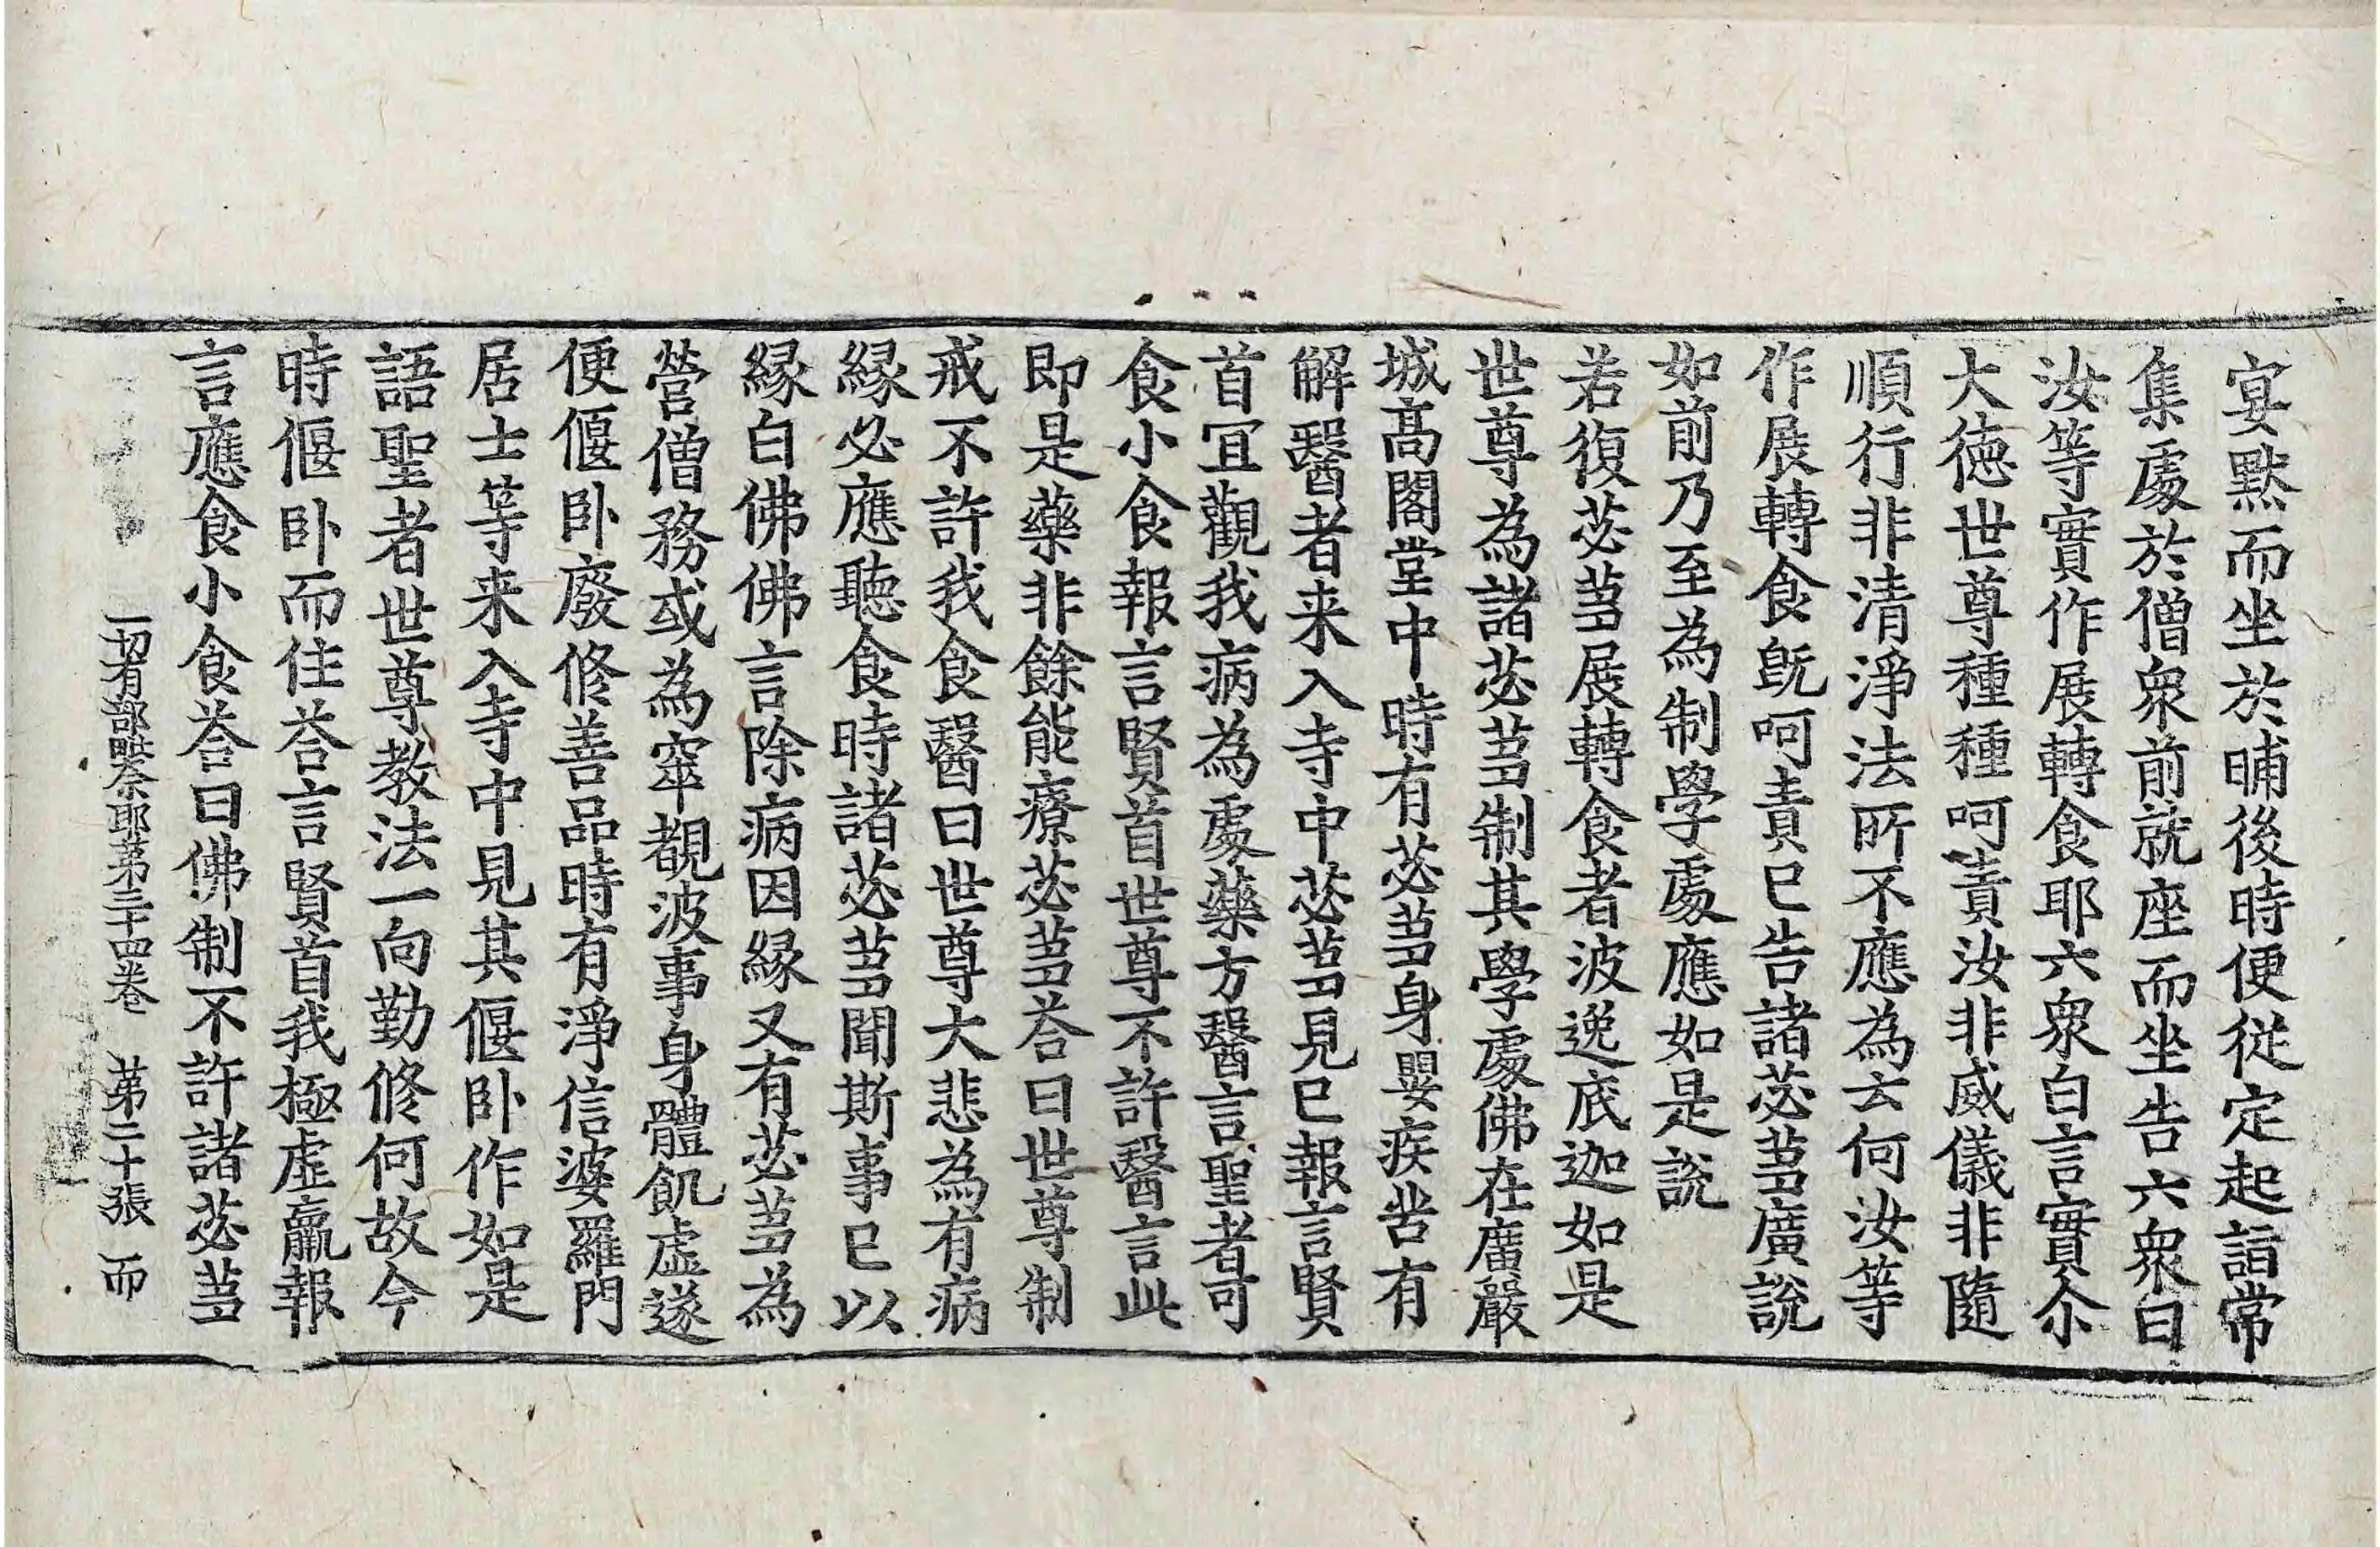 宴默而坐於晡後時便從定起詣常
集處於僧衆前就座而坐告六衆曰
汝等實作展轉食耶六衆白言實尒
大德世尊種種呵責汝非威儀非隨
順行非清淨法所不應為云何汝等
作展轉食旣呵責已告諸苾芻廣說
如前乃至為制學處應如是說
若復苾芻展轉食者波逸底迦如是
世尊為諸苾芻制其學處佛在廣嚴
城高閣堂中時有苾芻身嬰疾苦有
解醫者来入寺中苾芻見已報言賢
首冝觀我病為處藥方醫言聖者可
食小食報言賢首世尊不許醫言此
即是藥非餘能療苾芻荅曰世尊制
戒不許我食醫曰世尊大悲為有病
緣必應聽食時諸苾芻聞斯事已以
緣白佛佛言除病因緣又有苾芻為
營僧務或為窣覩波事身體飢虛遂
便偃卧廢修善品時有淨信婆羅門
居士等来入寺中見其偃卧作如是
語聖者世尊教法一向勤修何故今
時偃卧而住荅言賢首我極虛羸報
言應食小食荅曰佛制不許諸苾芻
一切有部毗奈耶第三十四卷 第二十張 而